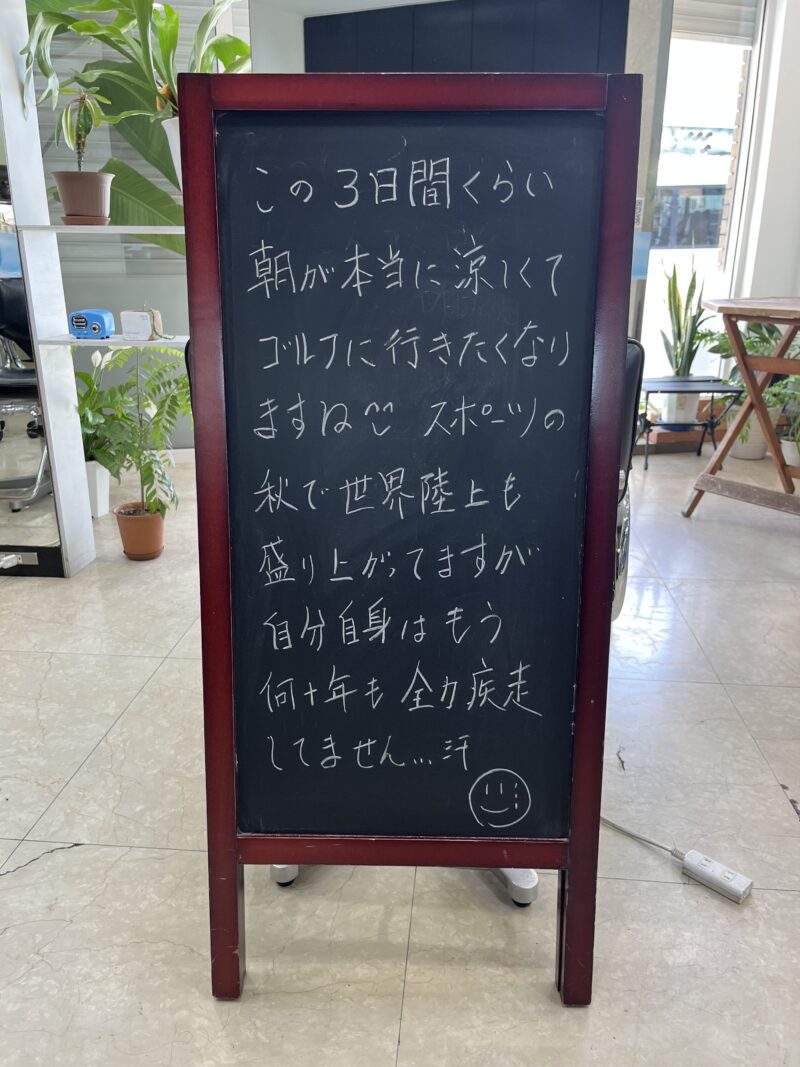 この3日間くらい
朝が本当に涼しくて
ゴルフに行きたくなり
ますね^^ スポーツの
秋で世界陸上も
盛り上がってますが
自分自身はもう
何十年も全力疾走
してません...汗